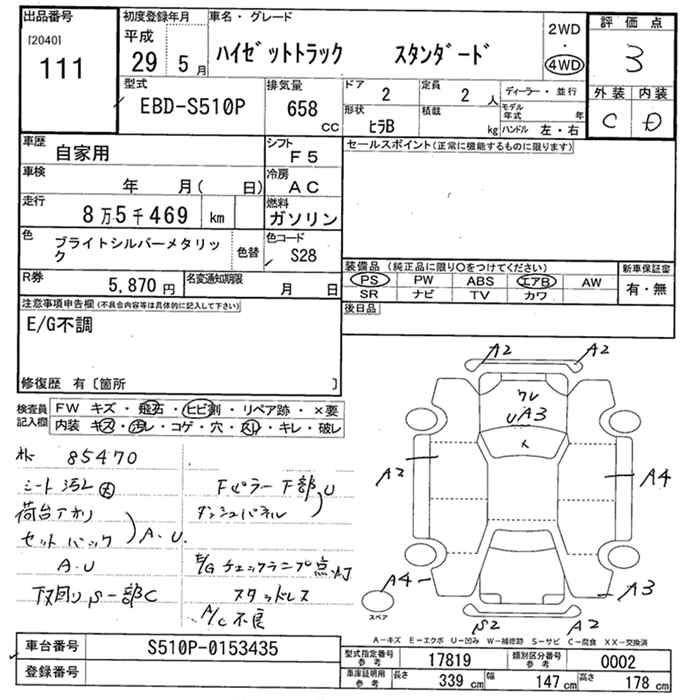 出品番号 初度登録年月 車名・グレード 2WD 評価点
[2040] 平成 ・
111 29 5月 ハイゼットトラック スタンダード 4WD 3
型式 排気量 ドア 定員 ディーラー・並行 外装 内装
EBD-S510P 658 cc 2 2 人 モデル年式 年 C D
形状 積載
ヒラB kg ハンドル 左・右
車歴 自家用 シフト F5 セールスポイント(正常に機能するものに限ります)
車検 年 月( 日) 冷房 AC
走行 8万5千469 km 燃料 ガソリン
色 ブライトシルバーメタリック 色替 色コード S28
R券 5,870円 名変通知期限 月 日
装備品(純正品に限り○をつけてください) 新車保証書
PS PW ABS エアB AW 有・無
SR ナビ TV カワ
後日品
注意事項申告欄(不具合内容等は具体的に記入して下さい)
E/G不調
修復歴 有〔箇所 〕
検査員記入欄 FW キズ・飛石・ヒビ割・リペア跡・×要
内装 キズ・汚れ・コゲ・穴・スレ・キレ・破レ
85470
シート汚レ大
荷台アオリ
セットバック A・U
A・U
下回りS一部C
Fピラー下部 U
ダッシュパネル
E/Gチェックランプ点灯
スタッドレス
A/C不良
A2 A2
ワレ
UA3
A2 A4
A4 A3
S2 A2
スペア
A-キズ E-エクボ U-凹み W-補修跡 S-サビ C-腐食 XX-交換済
車台番号 S510P-0153435
登録番号
型式指定番号 参考 17819 類別区分番号 参考 0002
車庫証明用 参考 長さ 339 cm 幅 147 cm 高さ 178 cm